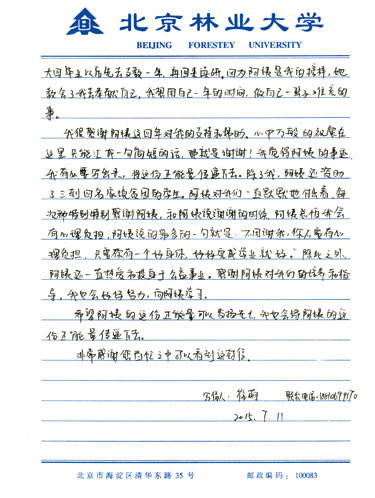 北京林业大学
BEIJING FORESTEY UNIVERSITY
大四毕业以后先去支教一年,再回来读研。因为阿姨是我的榜样,她
教会了我去奉献自己,我想用自己一年的时间,做自己一辈子难忘的
事。
我很感谢阿姨这四年对我的支持和帮助。心中万般的祝愿在
这里只能汇成一句简短的话,那就是谢谢!我觉得阿姨的事迹
我有必要写出来,将这份正能量传递下去。除了我,阿姨还资助
了三到四名家境贫困的学生。阿姨对我们一直默默地付出着,每
次都特别特别感谢阿姨,和阿姨说谢谢的时候,阿姨总怕我会
有心理负担,阿姨说的最多的一句就是:“不用谢我,你不要有心
理负担,只要你有一个好身体,好好完成学业就好。”除此之外,
阿姨还一直持续和投身于公益事业。感谢阿姨对我们的培养和指
导,我也会好好努力,向阿姨学习。
希望阿姨的这份正能量可以发扬光大,我也会将阿姨的这
份正能量传递下去。
非常感谢您百忙之中可以看到这封信。
写信人:
联系电话:
2015.7.11
北京市海淀区清华东路 35 号 邮政编码:100083